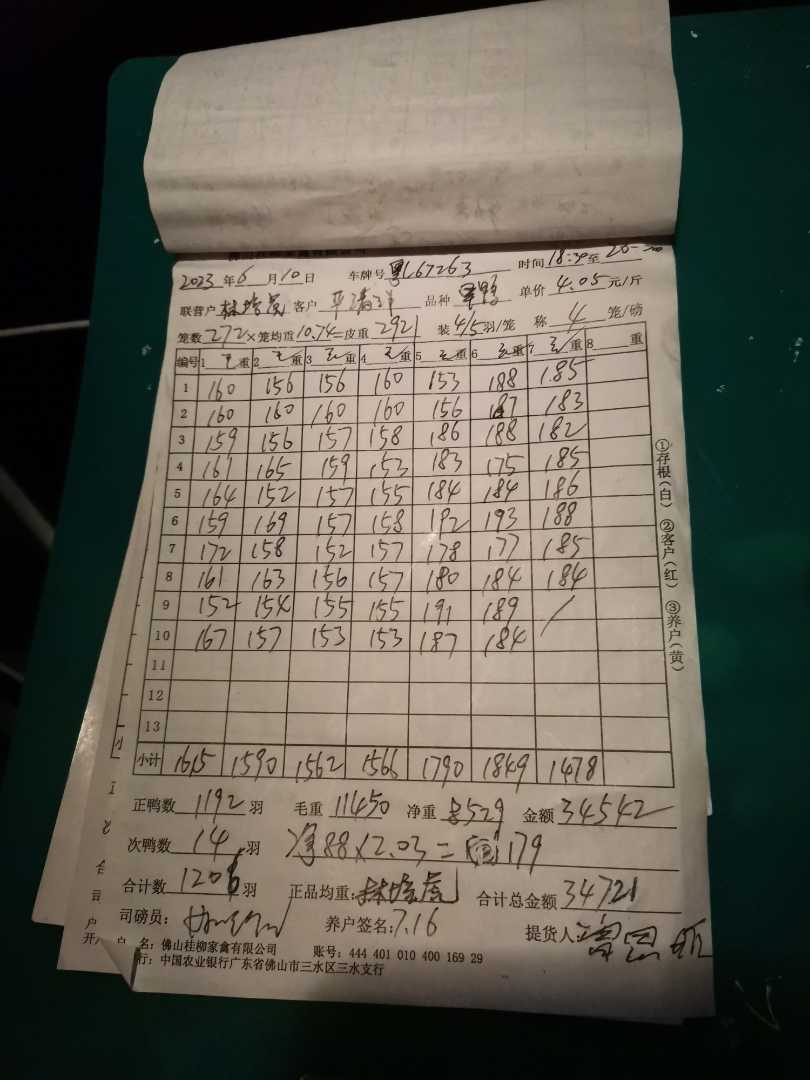 2023年6月10日 车牌号 粤L67263 时间18:30至
联营户 客户 品种 单价4.05元/斤
笼数272×笼均重10.74=皮重2921 装4/5羽/笼 称4笼/磅
编号 1毛重 2毛重 3毛重 4毛重 5毛重 6毛重 7毛重 8重
1 160 156 156 160 153 188 185
2 160 160 160 160 156 187 183
3 159 156 157 158 186 188 182
4 167 165 159 153 183 175 185
5 164 152 157 155 184 184 186
6 159 169 157 158 192 193 188
7 172 158 152 157 178 177 185
8 161 163 156 157 180 184 184
9 152 154 155 155 191 189 /
10 167 157 153 153 187 184
11
12
13
小计 1615 1590 1562 1566 1790 1849 1478
正鸭数1192羽 毛重11450 净重8529 金额34542
次鸭数14羽 净88×2.03=179
合计数1206羽 正品均重: 合计总金额34721
司磅员: 养户签名:7.16 提货人:
名:佛山桂柳家禽有限公司 账号:444 401 010 400 169 29
行:中国农业银行广东省佛山市三水区三水支行
①存根(白) ②客户(红) ③养户(黄)